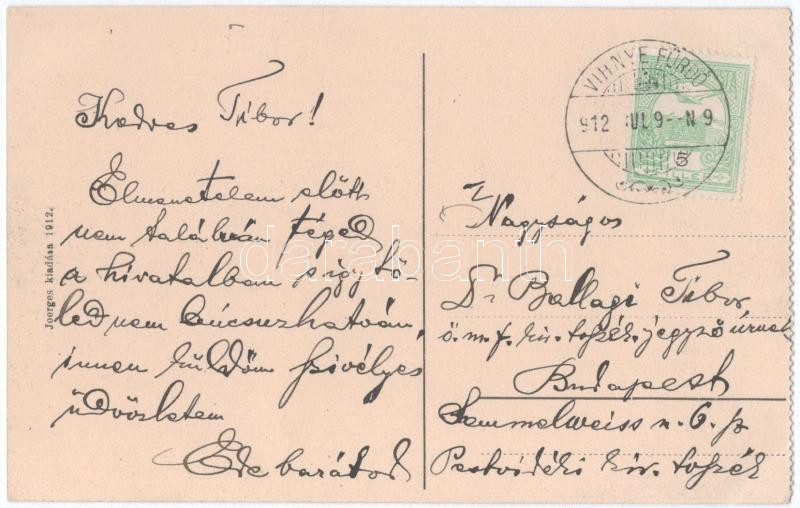 Kedves Tibor!
Elmenetelem előtt
nem találván téged
a hivatalban s így tő-
led nem búcsuzhatván,
innen küldöm szivélyes
üdvözletem
Ede barátod
Joerges kiadása 1912.
VIHNYE FÜRDŐ
912 JUL 9 -- N 9
Nagyságos
Dr Ballagi Tibor
ö. m. f. kir. tvszék. jegyző úrnak
Budapest
Semmelweiss u. 6. sz
Pestvidéki kir. tvszék
darabanth